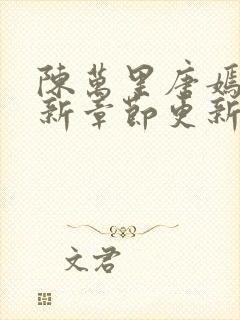 陳萬里唐嫣
新章節更新
文君